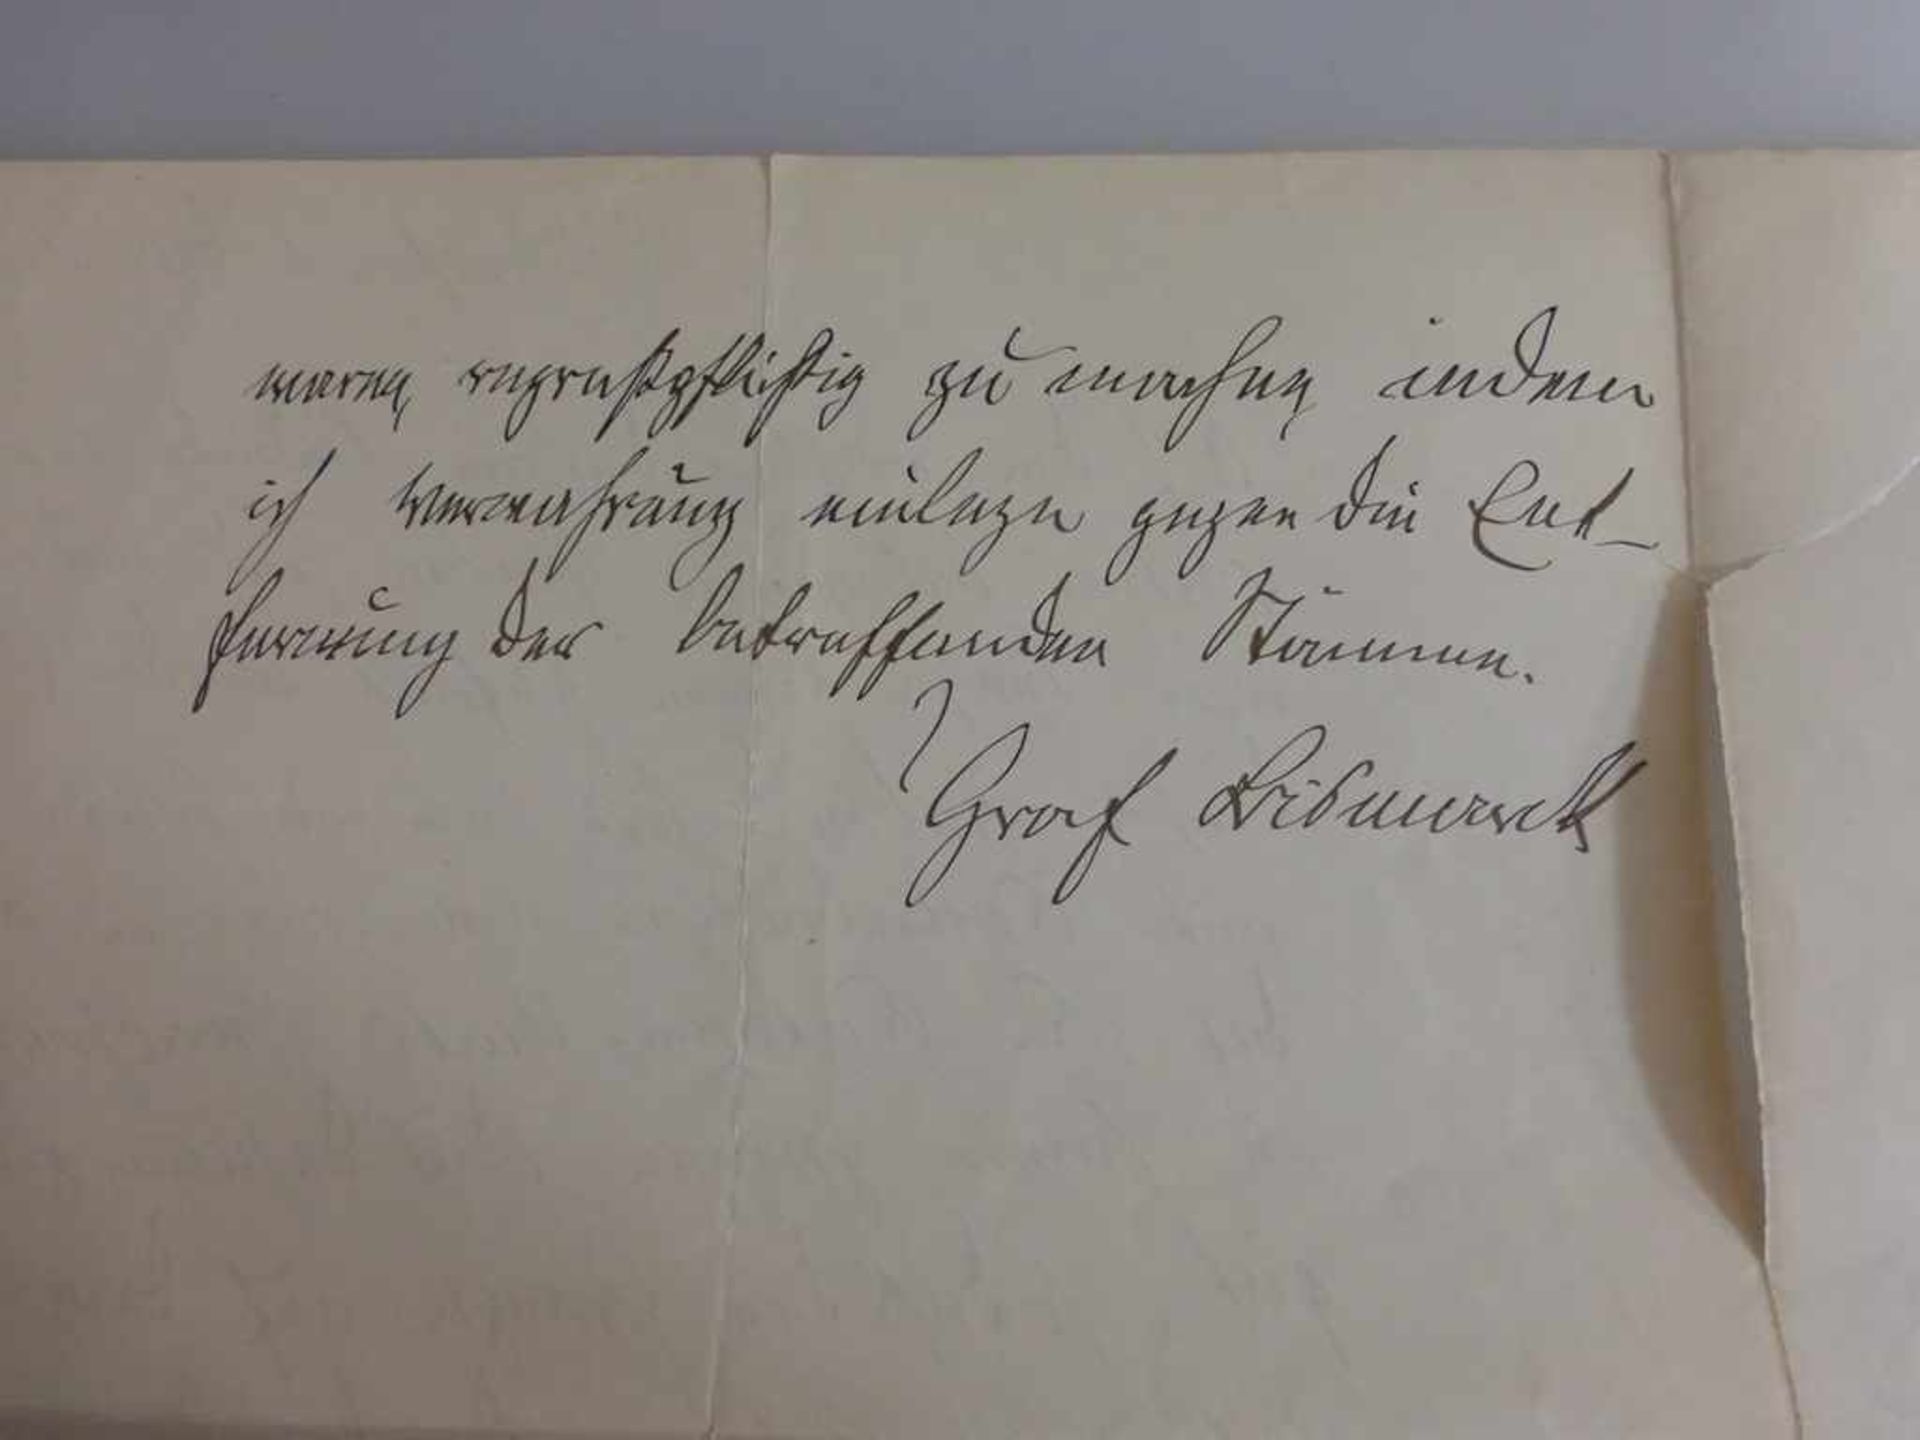 waren regreßpflichtig zu machen indem
ich Verwahrung einlege gegen die Ent-
fernung der betreffenden Stämme.
Graf Bismarck